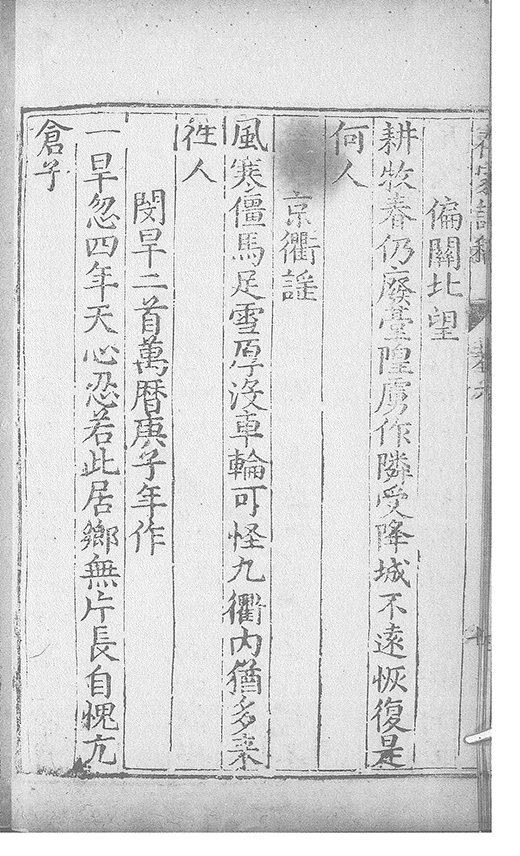 偏關北望
耕牧春仍廢臺隍虜作隣受降城不遠恢復是
何人
京衢謠
風寒僵馬足雪厚沒車輪可怪九衢內猶多来
徃人
閔旱二首萬曆庚子年作
一旱忽四年天心忍若此居鄉無片長自愧亢
倉子